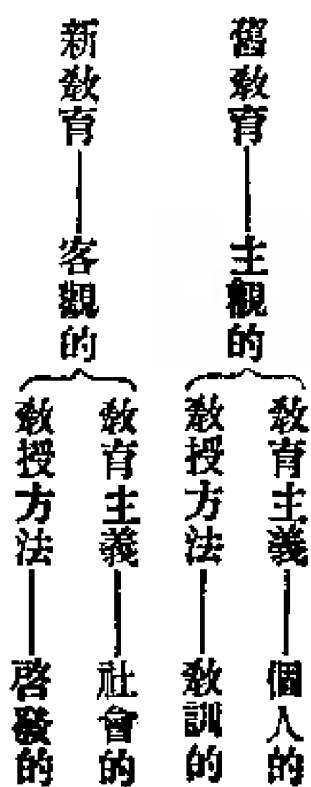 舊教育——主觀的
教育主義——個人的
教授方法——教訓的
新教育——客觀的
教育主義——社會的
教授方法——啓發的